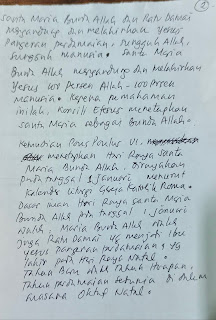 2
Santa Maria Bunda Allah dan Ratu Damai
Mengandung dan melahirkan Yesus
Pangeran perdamaian, sungguh Allah,
Sungguh manusia. Santa Maria
Bunda Allah mengandung dan melahirkan
Yesus 100 persen Allah - 100 persen
Manusia. Karena pemahaman
inilah, Konsili Efesus menetapkan
Santa Maria sebagai Bunda Allah.
Kemudian Paus Paulus VI.
menetapkan Hari Raya Santa
Maria Bunda Allah, dirayakan
pada tanggal 1 Januari menurut
Kalender Liturgi Gereja Katolik Roma.
Dasar iman Hari Raya Santa Maria
Bunda Allah pada tanggal 1 Januari
ialah: Maria Bunda Allah ialah
juga Ratu Damai yg menjadi Ibu
Yesus Pangeran perdamaian yg
lahir pada Hari Raya Natal.
Tahun Baru ialah Tahun Harapan,
Tahun perdamaian di dalam
suasana Oktaf Natal.